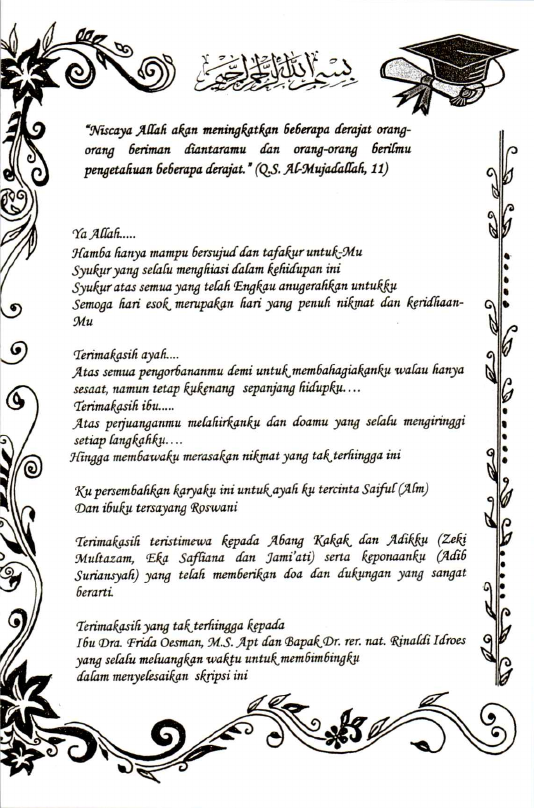 بسم الله الرحمن الرحيم
"Niscaya Allah akan meningkatkan beberapa derajat orang-
orang beriman diantaramu dan orang-orang berilmu
pengetahuan beberapa derajat." (Q.S. Al-Mujadallah, 11)
Ya Allah.....
Hamba hanya mampu bersujud dan tafakur untuk-Mu
Syukur yang selalu menghiasi dalam kehidupan ini
Syukur atas semua yang telah Engkau anugerahkan untukku
Semoga hari esok merupakan hari yang penuh nikmat dan keridhaan-
Mu
Terimakasih ayah....
Atas semua pengorbananmu demi untuk membahagiakanku walau hanya
sesaat, namun tetap kukenang sepanjang hidupku....
Terimakasih ibu.....
Atas perjuanganmu melahirkanku dan doamu yang selalu mengiringgi
setiap langkahku....
Hingga membawaku merasakan nikmat yang tak terhingga ini
Ku persembahkan karyaku ini untuk ayah ku tercinta Saiful (Alm)
Dan ibuku tersayang Roswani
Terimakasih teristimewa kepada Abang Kakak dan Adikku (Zeki
Multazam, Eka Safliana dan Jami'ati) serta keponaanku (Adib
Suriansyah) yang telah memberikan doa dan dukungan yang sangat
berarti.
Terimakasih yang tak terhingga kepada
Ibu Dra. Frida Oesman, M.S. Apt dan Bapak Dr. rer. nat. Rinaldi Idroes
yang selalu meluangkan waktu untuk membimbingku
dalam menyelesaikan skripsi ini